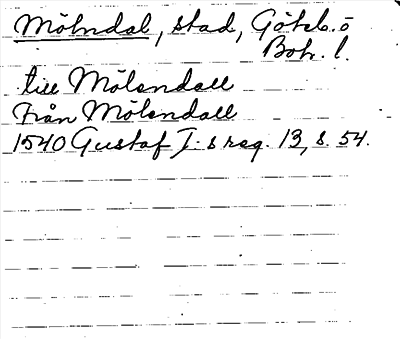 Mölndal, stad, Göteb. o
Boh. l.
till Mölendall
Från Mölendall
1540 Gustaf I:s reg. 13, s. 54.